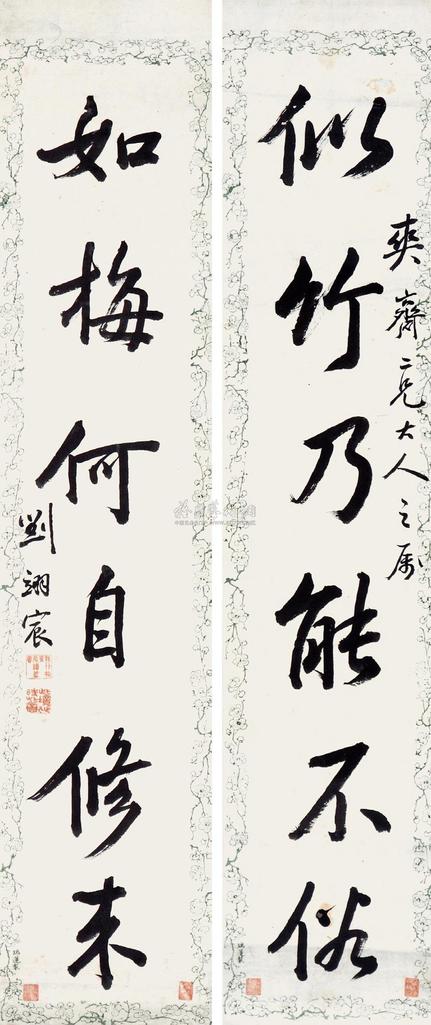 爽齋二兄大人之属
似竹乃能不俗
如梅何自修来
劉翊宸